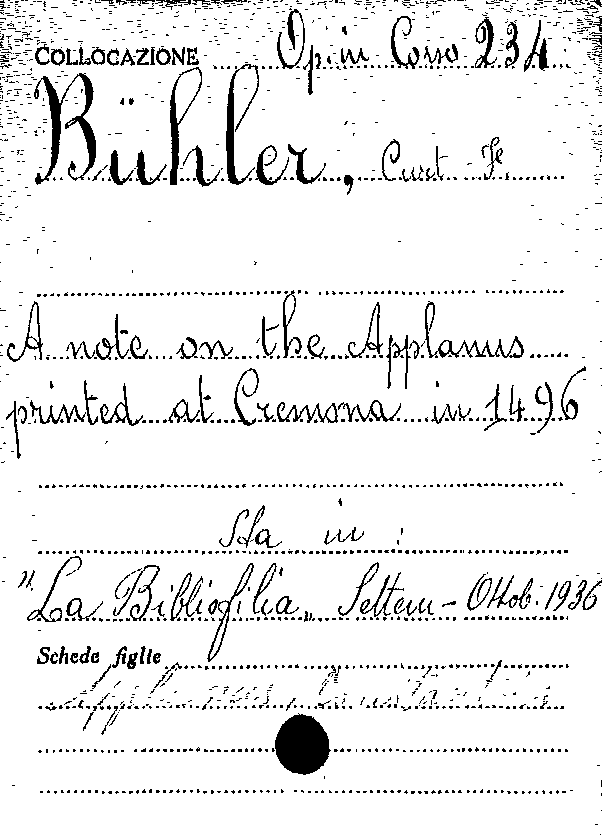 COLLOCAZIONE Op. in Corso 234
Bühler, Curt F.
A note on the Applanus
printed at Cremona in 1496
Sta in :
"La Bibliofilia„ Settem - Ottob. 1936
Schede figlie
Applanus, Constantius